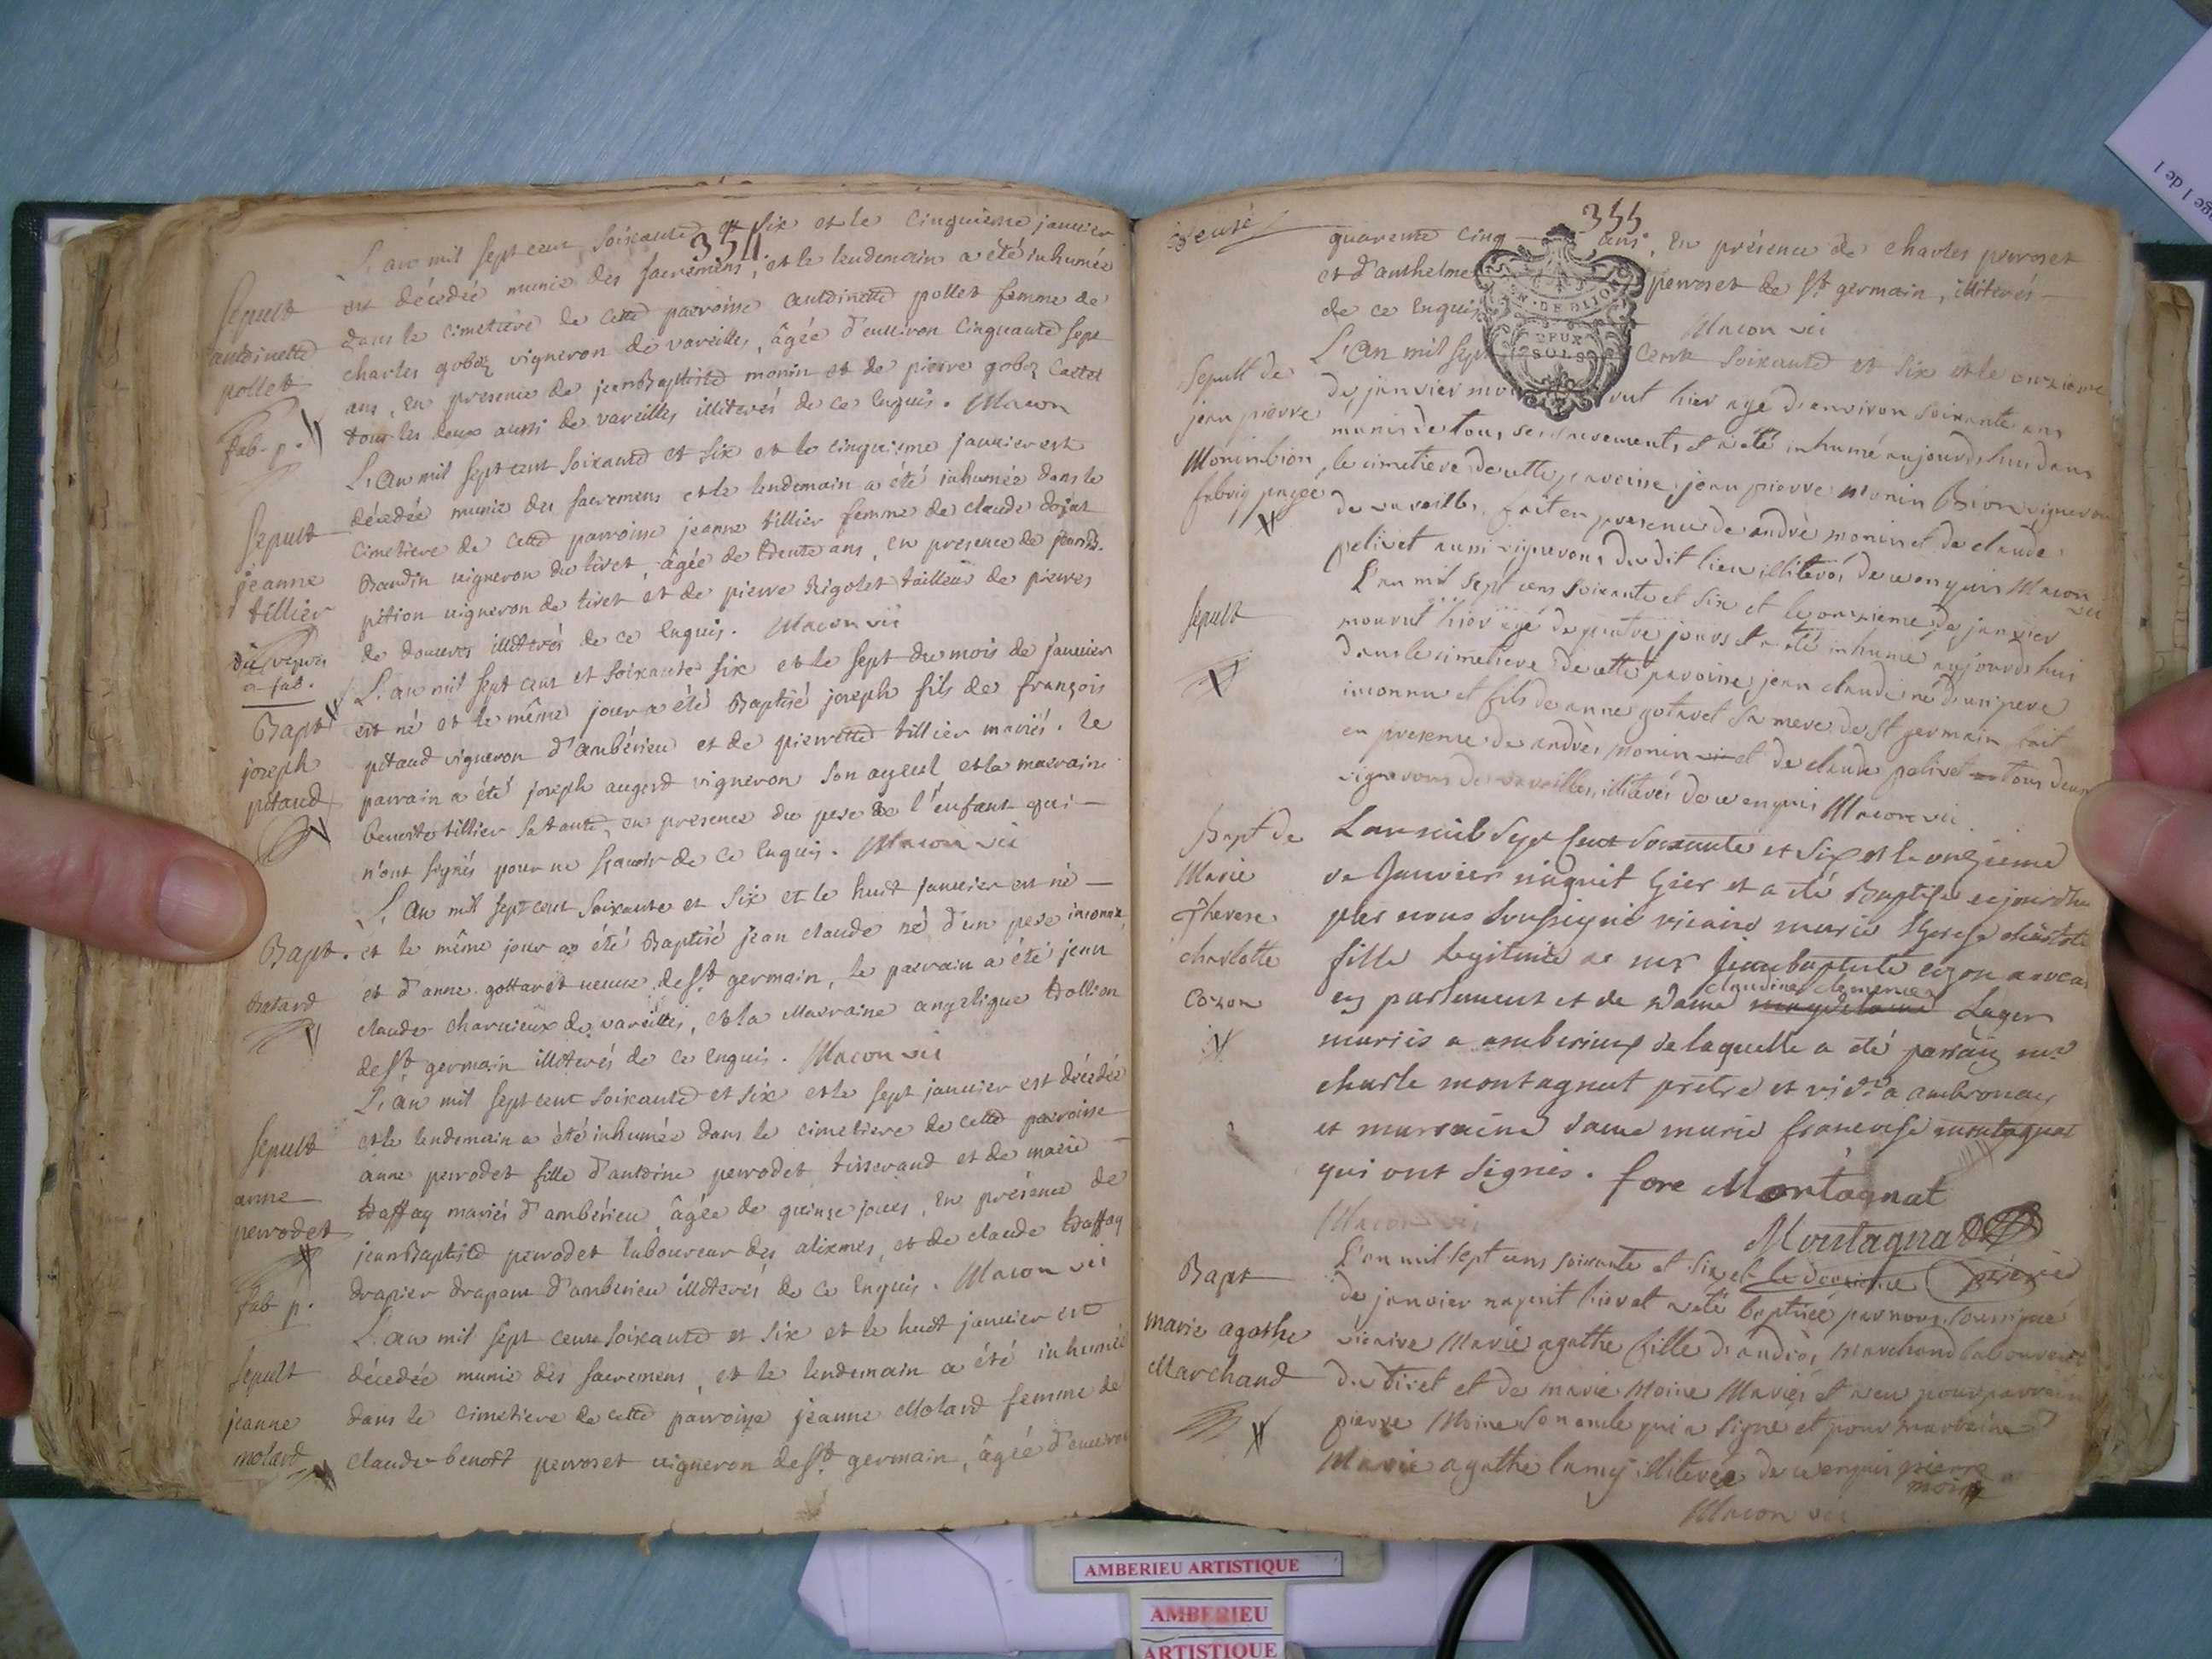 354
L'an mil sept cent soixante et six et le cinquieme janvier
est décédée munie des sacremens, et le lendemain a été inhumée
dans le cimetiere de cette parroisse antoinette pollet femme de
charles gobez vigneron de vareilles, âgée d'environ cinquante sept
ans, en presence de jean Baptiste monin et de pierre gobez
tous les deux aussi de vareilles illiterés de ce enquis. Macon
Sepult
antoinette
pollet
fab. p.
L'an mil sept cent soixante et six et le cinquieme janvier est
décédée munie des sacremens et le lendemain a été inhumée dans le
cimetiere de cette parroisse jeanne tillier femme de claude dojat
Baudin vigneron du tiret, âgée de trente ans, en presence de jean B.
pition vigneron de tiret et de pierre Rigolet tailleur de pierres
de douvres illiterés de ce enquis. Macon vic
Sepult
jeanne
tillier
L'an mil sept cent et soixante six et le sept du mois de janvier
est né et le même jour a été Baptisé joseph fils de françois
pitaud vigneron d'ambérieu et de pierrette tillier mariés. le
parrain a été joseph augerd vigneron son ayeul et la marraine
benoite tillier sa tante, en presence du pere de l'enfant qui
n'ont signés pour ne sçavoir de ce enquis. Macon vic
Bapt
joseph
pitaud
L'an mil sept cent soixante et six et le huit janvier est né
et le même jour a été Baptisé jean claude né d'un pere inconnu
et d'anne gottaret veuve de st germain, le parrain a été jean
claude charvieux de vareilles, et la Marraine angelique trollion
de st germain illiterés de ce enquis. Macon vic
Bapt.
batard
L'an mil sept cent soixante et six et le sept janvier est décédée
et le lendemain a été inhumée dans le cimetiere de cette parroisse
anne perrodet fille d'antoine perrodet tisserand et de marie
traffay mariés d'ambérieu, âgée de quinze jours, en présence de
jean Baptiste perrodet laboureur des alixmes, et de claude traffay
drapier drapant d'ambérieu illiterés de ce enquis. Macon vic
Sepult
anne
perrodet
fab p.
L'an mil sept cent soixante et six et le huit janvier est
décedée munie des sacremens, et le lendemain a été inhumée
dans le cimetiere de cette parroisse jeanne Molard femme de
claude benoît perroset vigneron de st germain, âgée d'environ
Sepult
jeanne
molard
355
quarente cinq ans, en présence de charles perroset
et d'anthelme perroset de St germain, illiterés
de ce enquis Macon vic
DEUX
SOLS
L'an mil sept cent soixante et six et le onzieme
de janvier mourut hier agé d'environ soixante ans
munis de tous ses sacrements, et a été inhumé aujourdhui dans
le cimetiere de cette paroisse jean pierre monin Bion vigneron
de vareilles, fait en presence de andré monin et de claude
pelivet aussi vignerons du dit lieu illiterés de ce enquis Macon
vic
Sepult de
jean pierre
Monin bion
fabriq payée
L'an mil sept cens soixante et six et le onzieme de janvier
mourut hier agé de quatre jours et a été inhumé aujourdhui
dans le cimetiere de cette paroisse jean claude né d'un pere
inconnu et fils de anne gotaret sa mere de st germain fait
en presence de andrés monin et de claude pelivet tous deux
vignerons de vareilles, illiterés de ce enquis Macon vic
Sepult
L'an mil sept cent soixante et six et le onzieme
de Janvier naquit hier et a été Baptisé aujourdhui
par nous soussigné vicaire marie therese charlotte
fille legitime de mr jean baptiste cozon avocat
en parlement et de dame claudine clemence Lager
mariés a amberieux de laquelle a été parrain mr
charle montagnat prêtre et vicre a ambronay
et marraine dame marie francoise montagnat
qui ont signés. fore Montagnat
Macon vic
Montagnat
Bapt de
Marie
therese
charlotte
cozon
L'an mil sept cens soixante et six et le douzieme
de janvier naquit hier et a été baptisée par nous soussigné
vicaire Marie agathe fille d'andrés Marchand laboureur
du tiret et de marie Moine Mariés et a eu pour parrain
pierre Moine son oncle qui a signé et pour marraine
Marie agathe lamy illiterée de ce enquis pierre
moine
Macon vic
Bapt
marie agathe
Marchand
AMBERIEU ARTISTIQUE
AMBERIEU
ARTISTIQUE